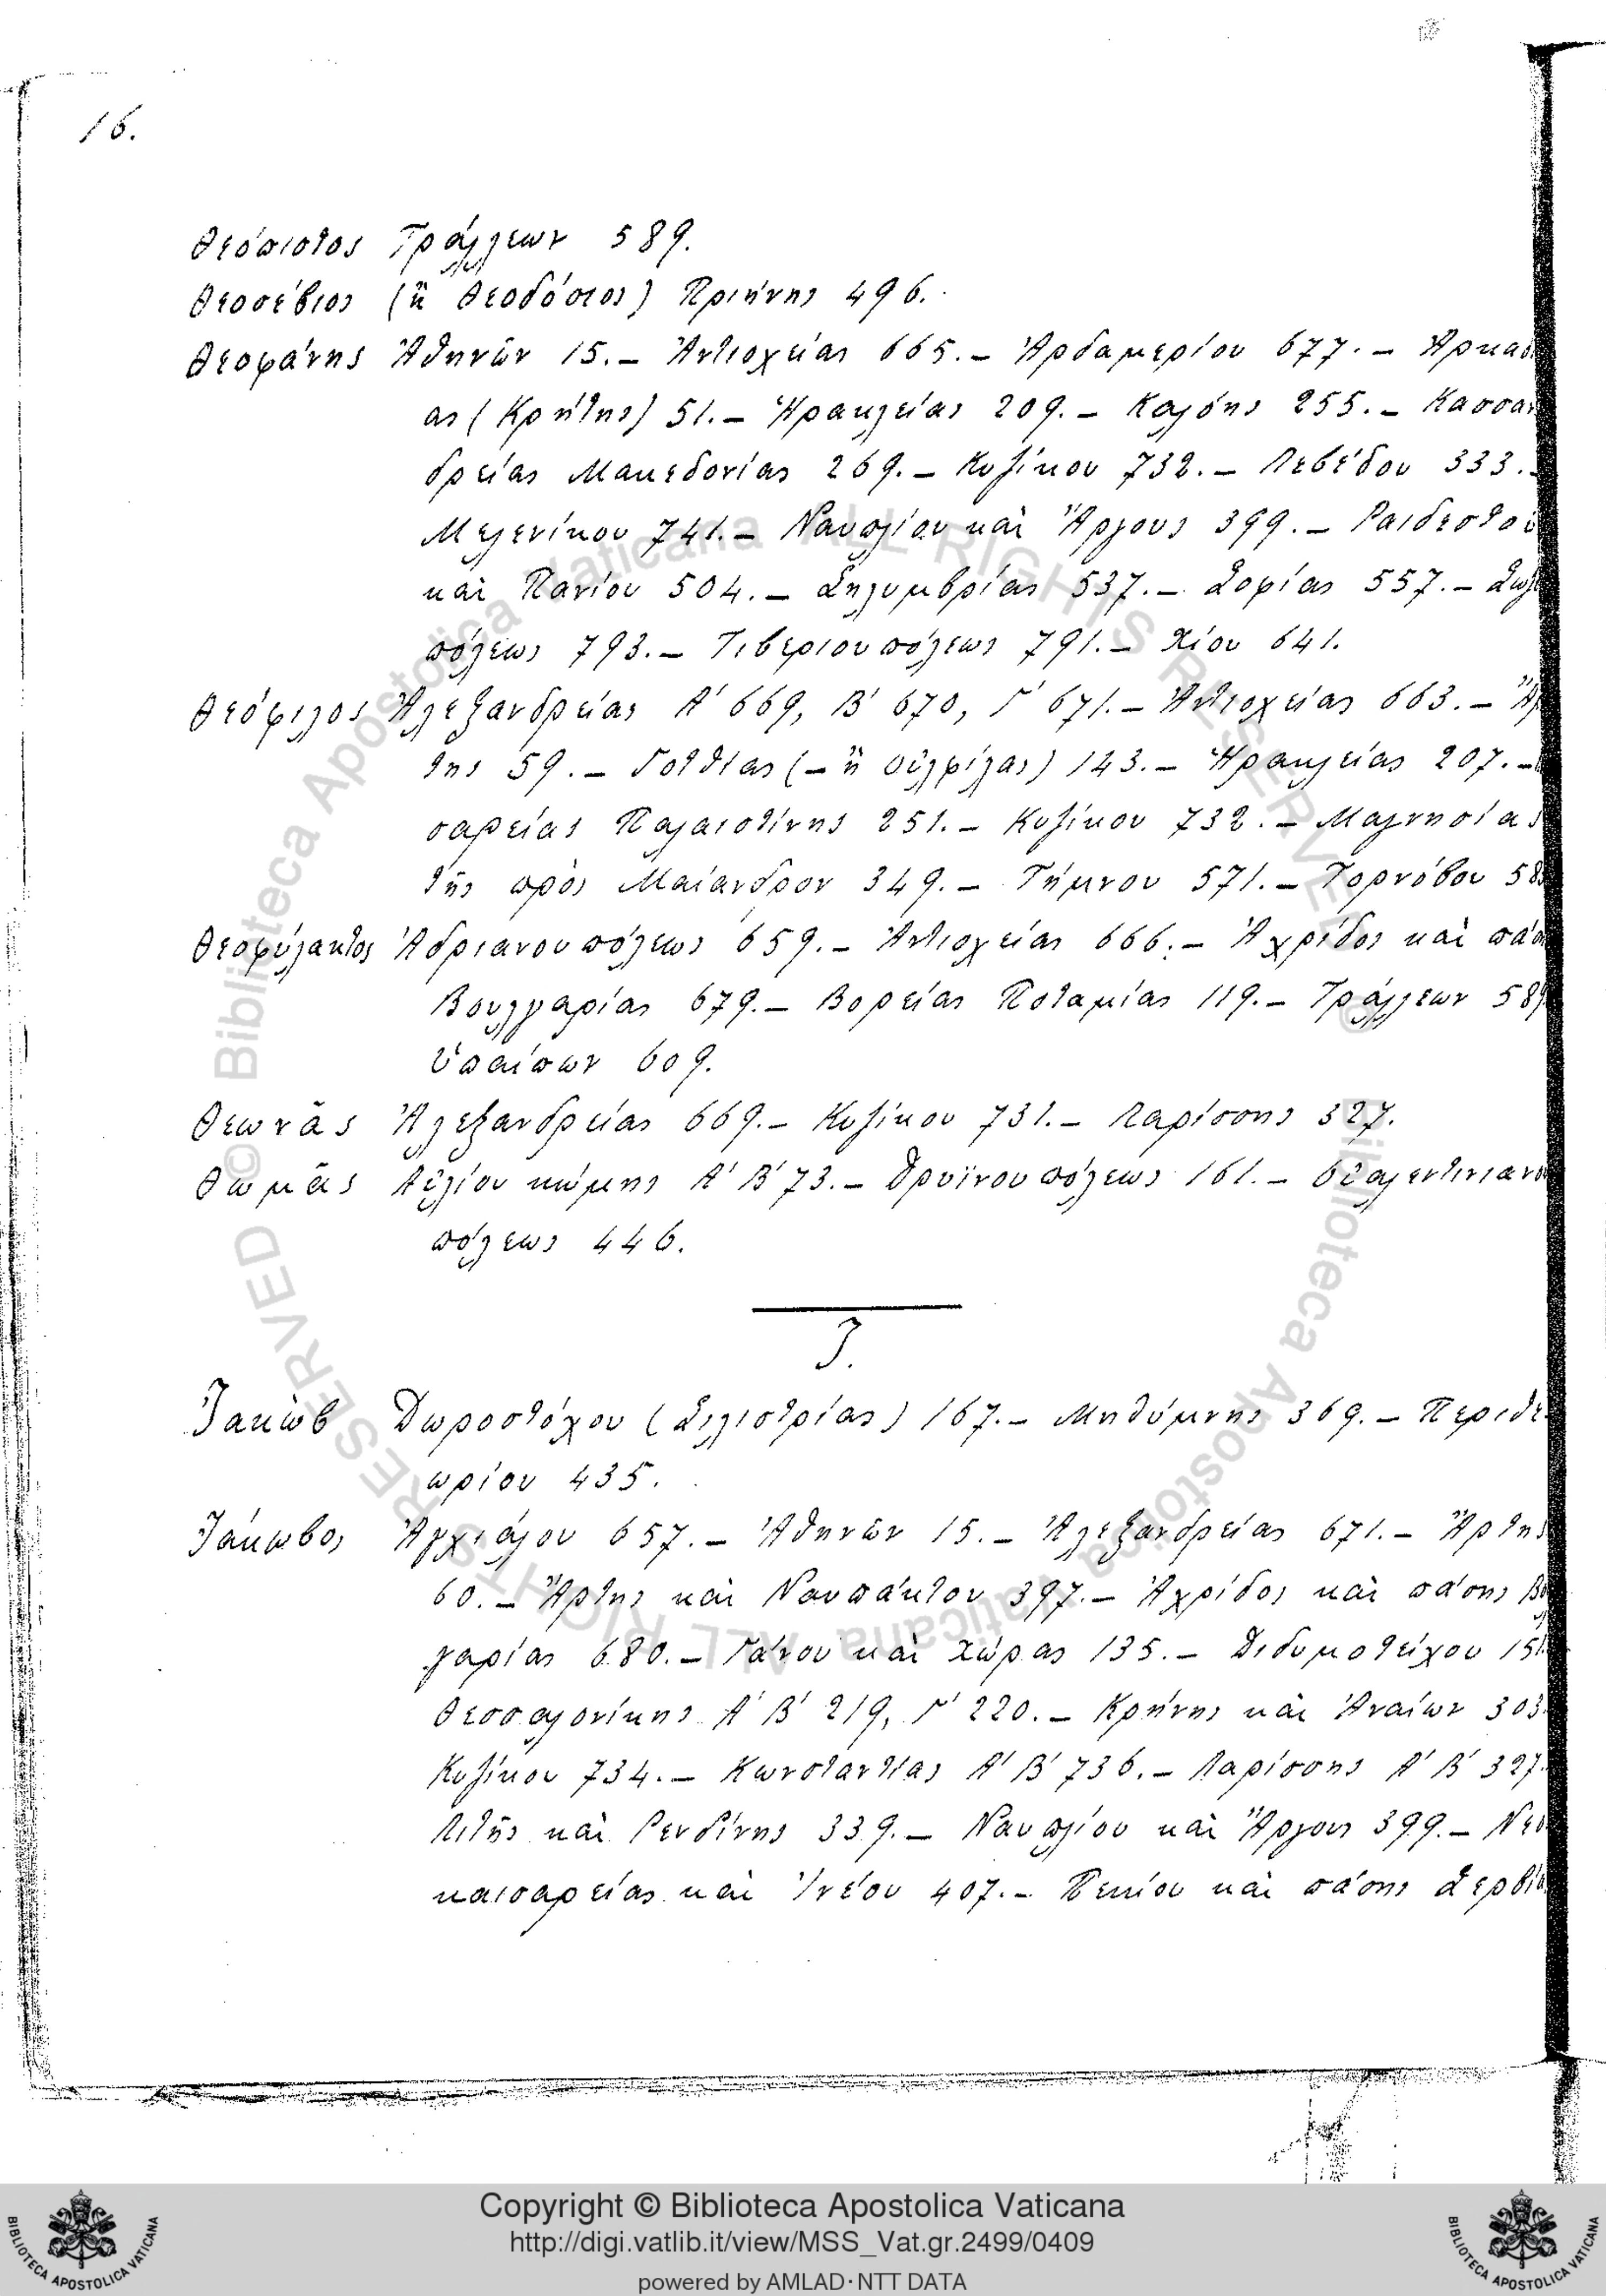 16.
Θεόπιστος Τράλλεων 589.
Θεοσέβιος (ἢ Θεοδόσιος) Πριήνης 496.
Θεοφάνης Ἀθηνῶν 15.— Ἀντιοχείας 665.— Ἀρδαμερίου 677.— Ἀρκαδί
ας (Κρήτης) 51.— Ἡρακλείας 209.— Καλόης 255.— Κασσαν
δρείας Μακεδονίας 269.— Κυζίκου 732.— Λεβέδου 333.—
Μελενίκου 741.— Ναυπλίου καὶ Ἄργους 399.— Ραιδεστοῦ
καὶ Πανίου 504.— Σηλυμβρίας 537.— Σοφίας 557.—
πόλεως 793.— Τιβεριουπόλεως 791.— Χίου 641.
Θεόφιλος Ἀλεξανδρείας Α΄ 669, Β΄ 670, Γ΄ 671.— Ἀντιοχείας 663.—
της 59.— Γοτθίας (— ἢ Οὐλφίλας) 143.— Ἡρακλείας 207.—
σαρείας Παλαιστίνης 251.— Κυζίκου 732.— Μαγνησίας
τῆς πρὸς Μαίανδρον 349.— Τήμνου 571.— Τορνόβου 58
Θεοφύλακτος Ἀδριανουπόλεως 659.— Ἀντιοχείας 666.— Ἀχρίδος καὶ πάσ
Βουλγαρίας 679.— Βορείας Ποταμίας 119.— Τράλλεων 589
Ὑπαίπων 609.
Θεωνᾶς Ἀλεξανδρείας 669.— Κυζίκου 731.— Λαρίσσης 327.
Θωμᾶς Αὐλίου κώμης Α΄ Β΄ 73.— Δρυϊνουπόλεως 161.— Οὐαλεντινιανο
πόλεως 446.
Ι.
Ἰακὼβ Δωροστόλου (Σιλιστρίας) 167.— Μηθύμνης 369.— Περιθε
ωρίου 435.
Ἰάκωβος Ἀγχιάλου 657.— Ἀθηνῶν 15.— Ἀλεξανδρείας 671.— Ἄρτης
60.— Ἄρτης καὶ Ναυπάκτου 397.— Ἀχρίδος καὶ πάσης Βουλ
γαρίας 680.— Γάνου καὶ Χώρας 135.— Διδυμοτείχου 151.
Θεσσαλονίκης Α΄ Β΄ 219, Γ΄ 220.— Κρήνης καὶ Ἀναίων 303.
Κυζίκου 734.— Κωνσταντίας Α΄ Β΄ 736.— Λαρίσσης Α΄ Β΄ 327.
Λιτῆς καὶ Ρενδίνης 339.— Ναυπλίου καὶ Ἄργους 399.— Νεο
καισαρείας καὶ Ἰνέου 407.— Πεκίου καὶ πάσης Σερβία
© Biblioteca Apostolica Vaticana ALL RIGHTS RESERVED
© Biblioteca Apostolica Vaticana ALL RIGHTS RESERVED
Copyright © Biblioteca Apostolica Vaticana
http://digi.vatlib.it/view/MSS_Vat.gr.2499/0409
powered by AMLAD·NTT DATA
BIBLIOTECA APOSTOLICA VATICANA
BIBLIOTECA APOSTOLICA VATICANA